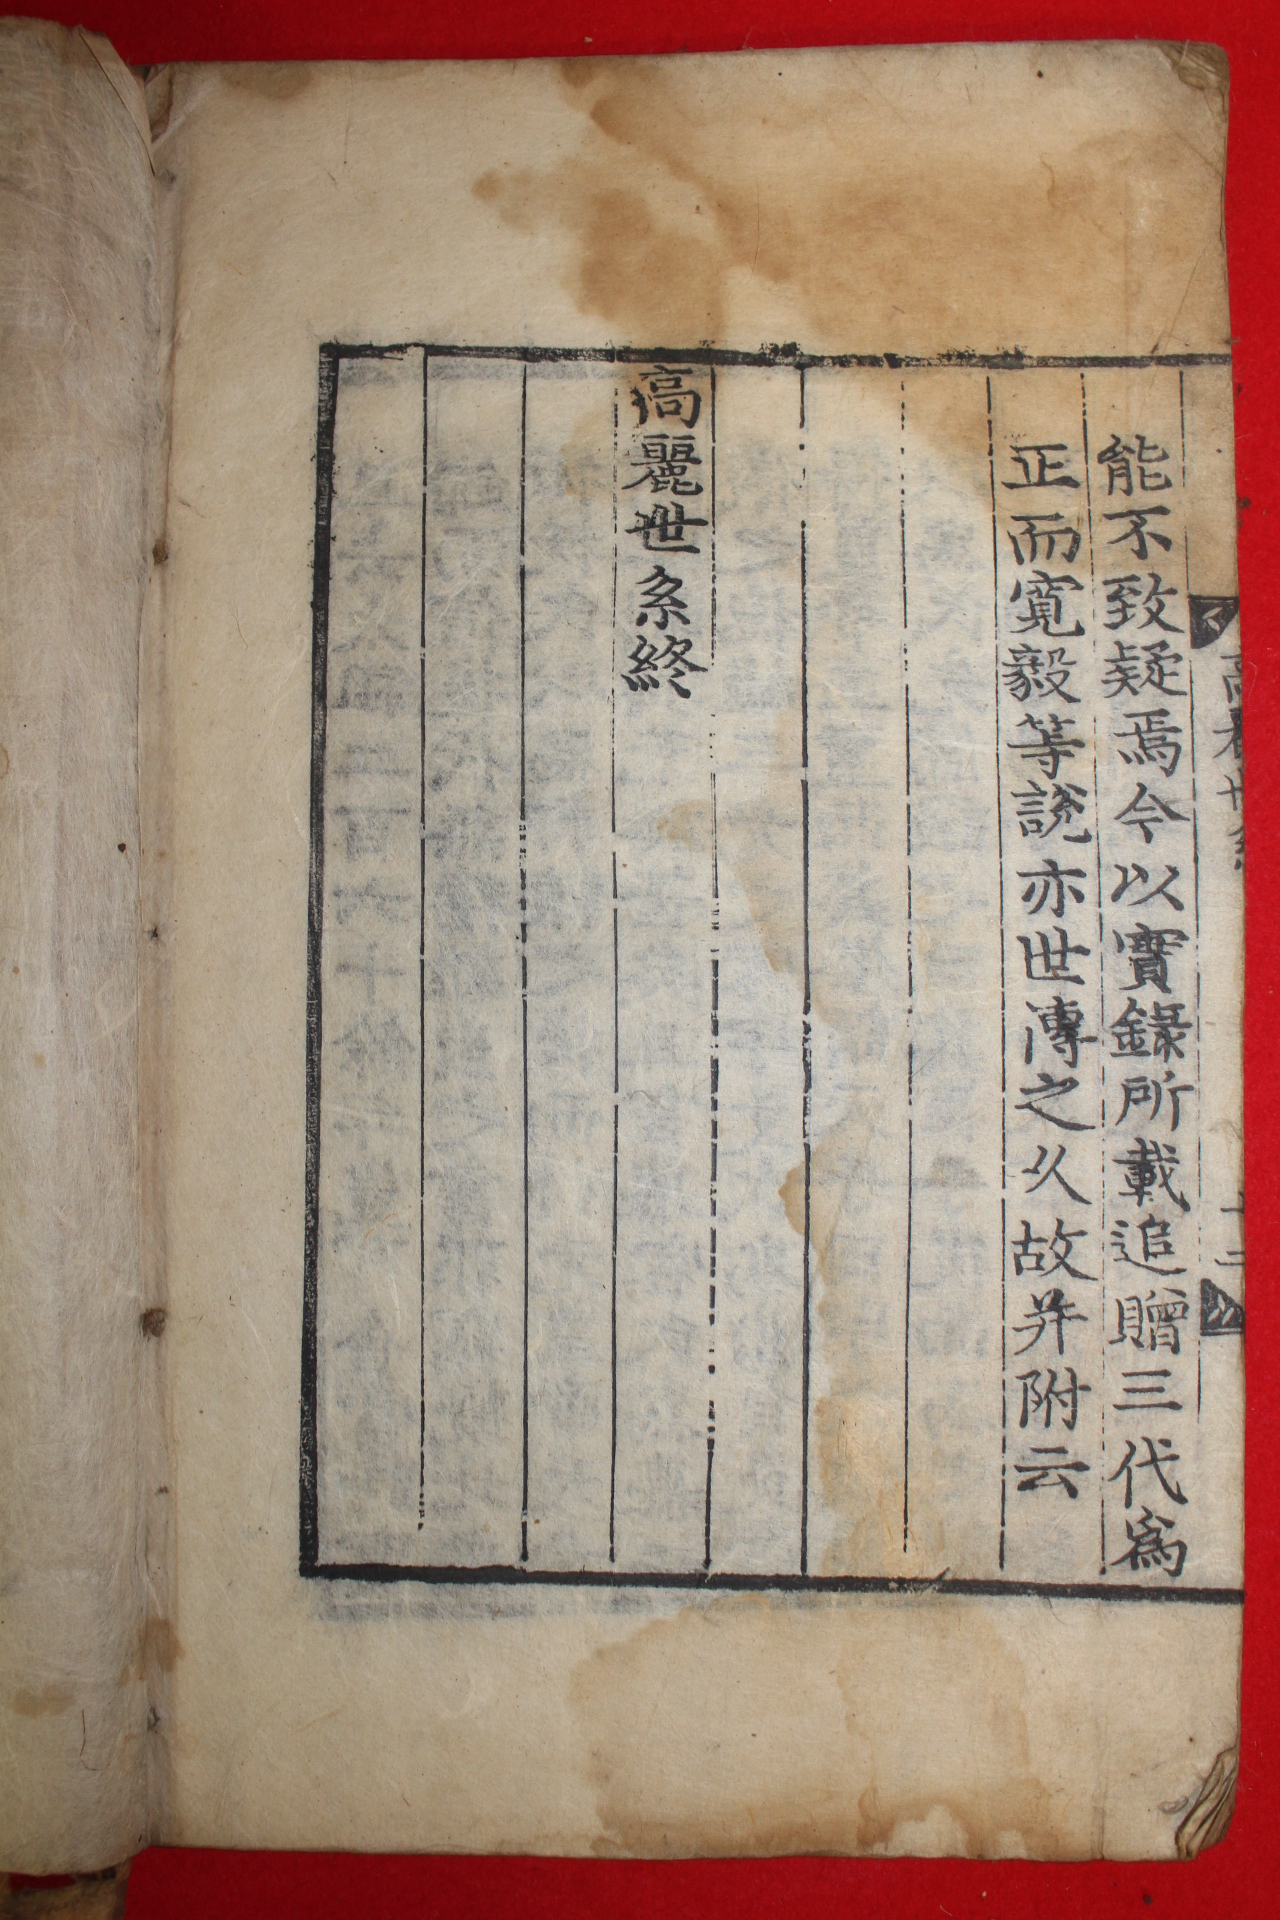 能不致疑焉今以實錄所載追贈三代爲
正而寬毅等說亦世傳之久故幷附云
高麗世系終
高麗世系